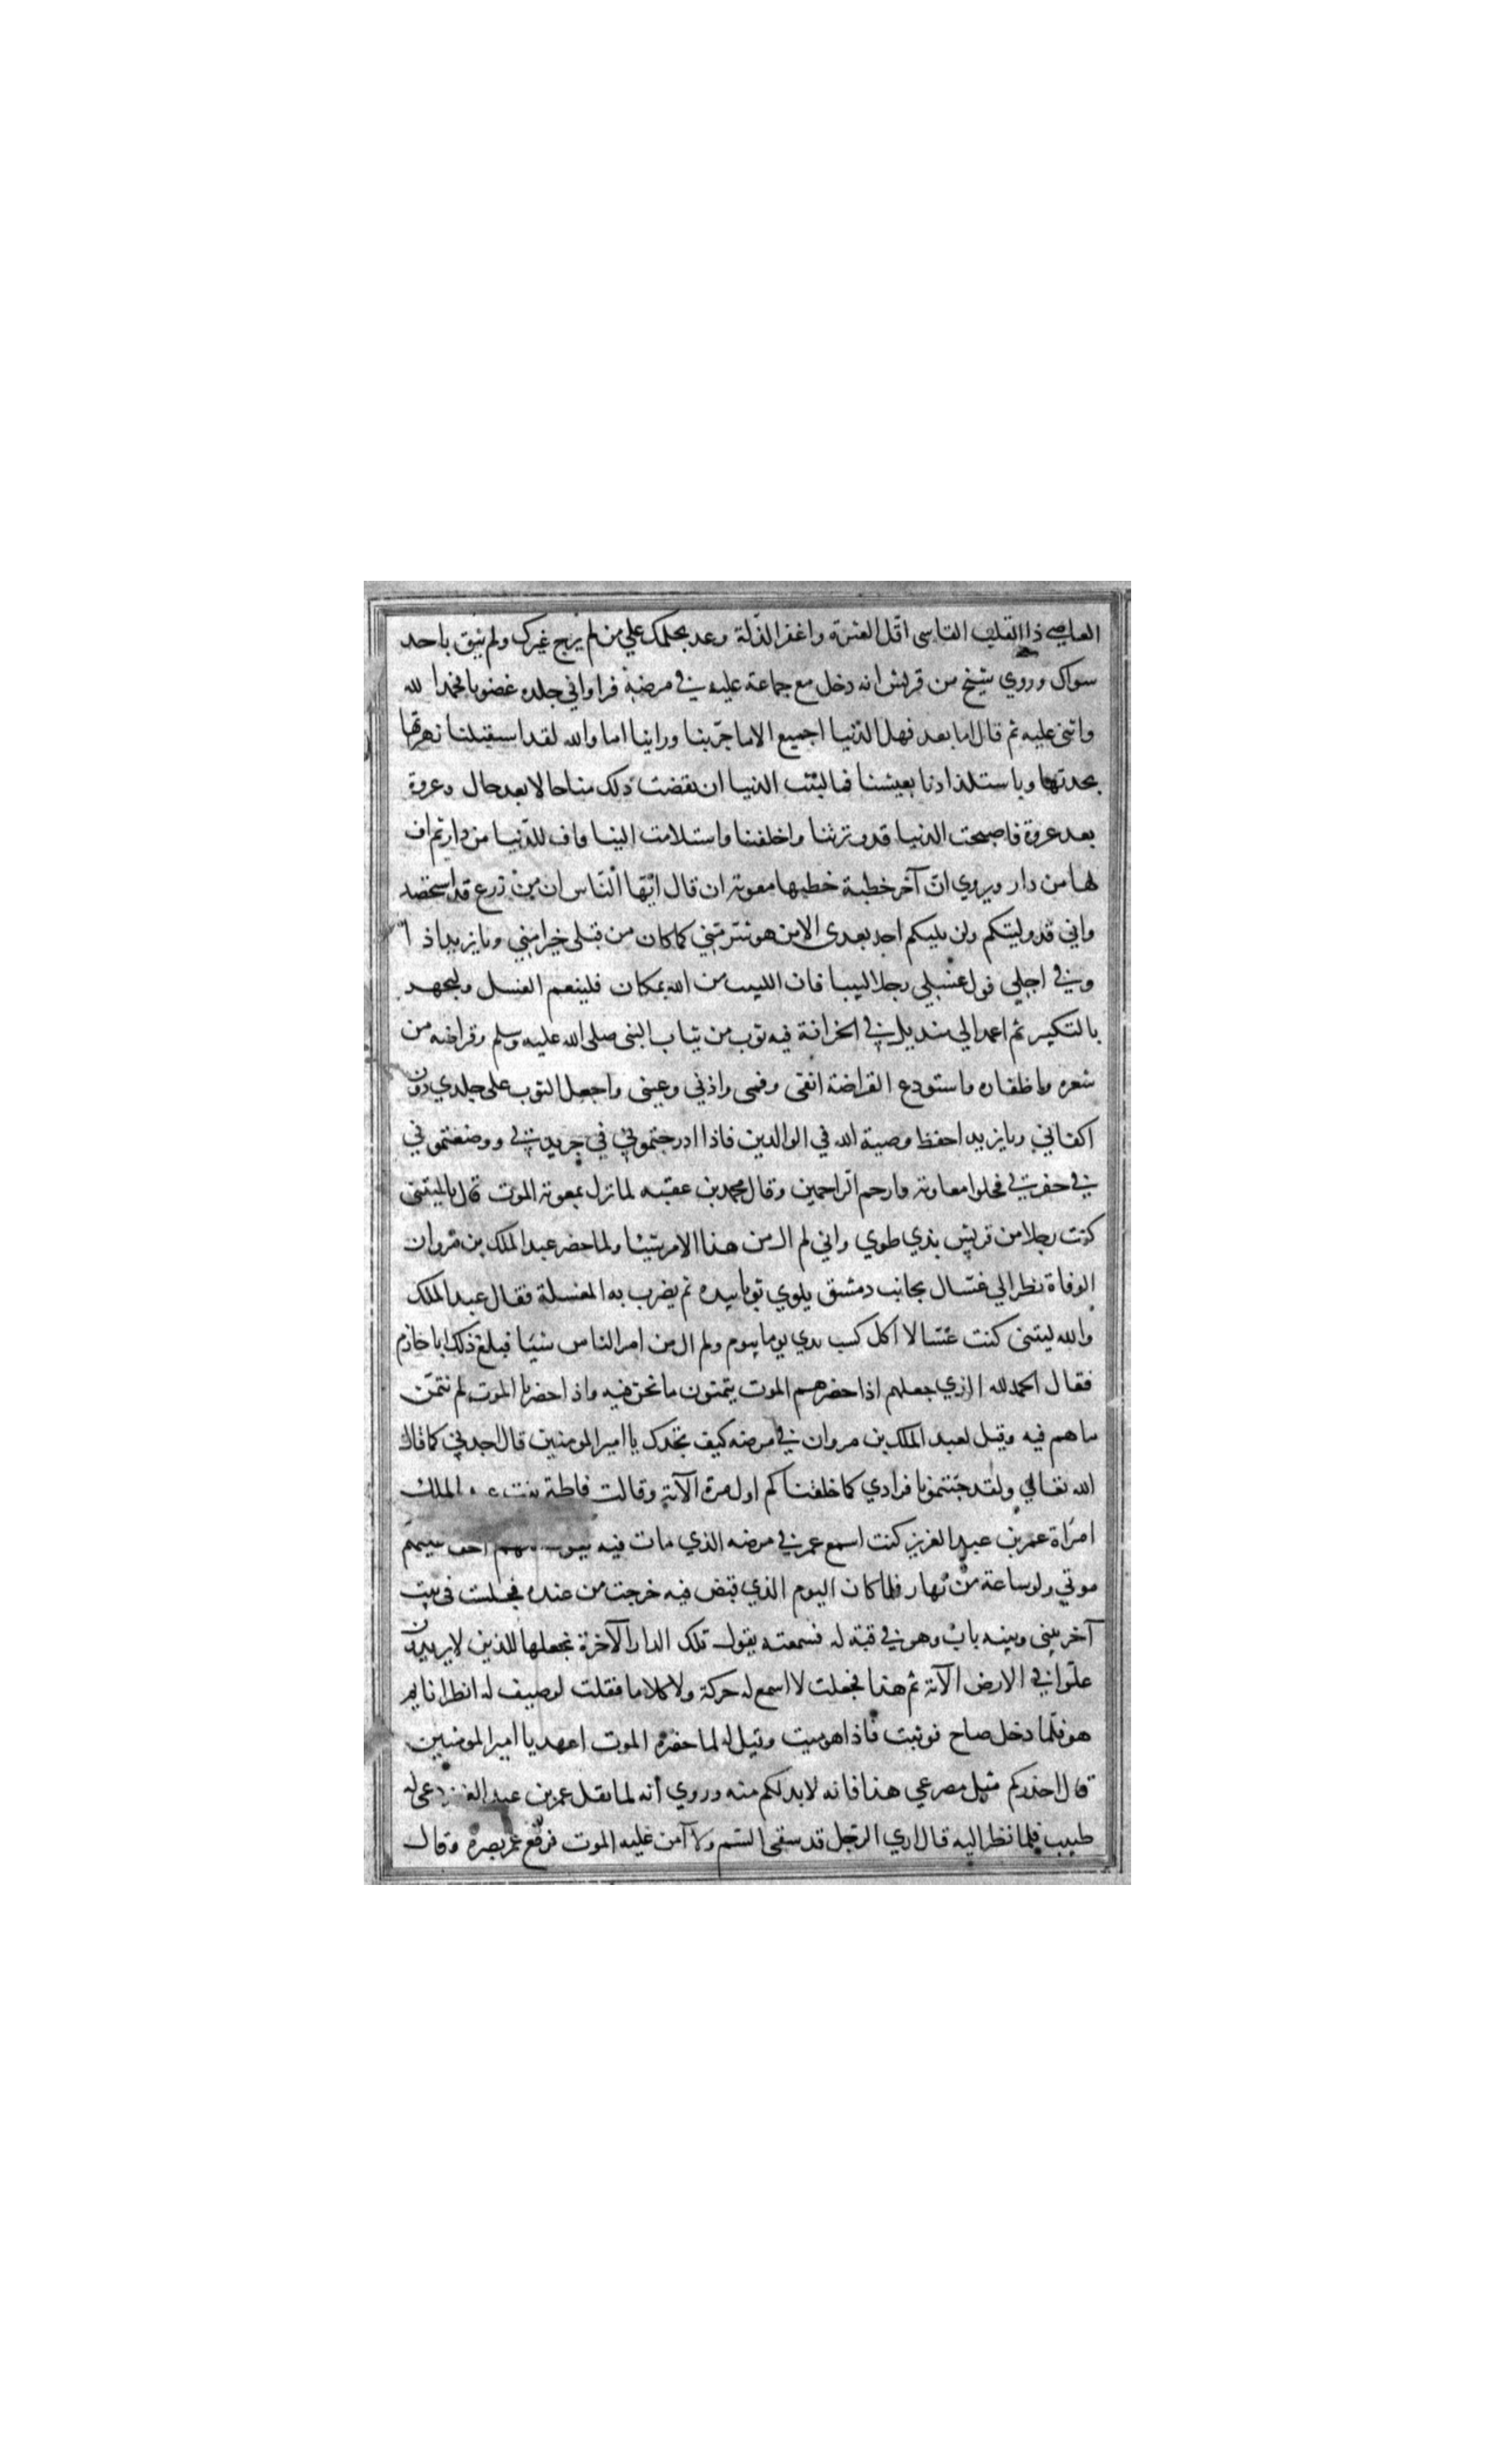 العاصي ذا القلب القاسي اقل العثرة واغفر الذلة وعد بحلمك علي من لم يرج غيرك ولم يثق باحد
سواك وروي شيخ من قريش انه دخل مع جماعة عليه في مرضه فراوا في جلده غضونا فحمد الله
واثنى عليه ثم قال اما بعد فهل الدّنيا اجميع الا ما جرّبنا وراينا اما والله لقد استقبلنا زهرتها
بجدتها وباستلذاذنا بعيشنا فما لبثت الدنيا ان نقضت ذلك منا حالا بعد حال وعروة
بعد عروة فاصبحت الدنيا قد وترتنا واخلفتنا واستلامت الينا واف للدّنيا من دار ثم اف
لها من دار ويروي انّ آخر خطبة خطبها معوية ان قال ايّها النّاس ان من زرع قد استحصد
واني قد وليتكم ولن يليكم احد بعدي الا من هو شر مني كما كان من قبلى خيرا مني ويا يزيد اذا
وفي اجلي فول غسلي رجلا لبيبا فان اللبيب من الله بمكان فلينعم الغسل وليجهد
بالتكبير ثم اعمد الي منديل في الخزانة فيه ثوب من ثياب النبى صلى الله عليه وسلم وقراضه من
شعره واظفاره فاستودع القراضة انفى وفمى واذني وعينى واجعل الثوب على جلدي دون
اكفاني ويا يزيد احفظ وصية الله في الوالدين فاذا ادرجتموني في جريدتي ووضعتموني
في حفرتي فخلوا معاوية وارحم الراحمين وقال محمد بن عقبه لما نزل بمعوية الموت قال يا ليتنى
كنت رجلا من قريش بذي طوي واني لم ال من هذا الامر شيئا ولما حضر عبد الملك بن مروان
الوفاة نظر الي غسّال بجانب دمشق يلوي ثوبا بيده ثم يضرب به المغسلة فقال عبد الملك
والله ليتنى كنت غسّالا اكل كسب يدي يوما بيوم ولم ال من امر الناس شيئا فبلغ ذلك ابا حازم
فقال الحمد لله الذي جعلهم اذا حضرهم الموت يتمنون ما نحن فيه واذا حضرنا الموت لم نتمنّ
ما هم فيه وقيل لعبد الملك بن مروان في مرضه كيف تجدك يا امير المومنين قال اجدني كما قال
الله تعالي ولقد جئتمونا فرادي كما خلقناكم اول مرة الآية وقالت فاطمة بنت عبد الملك
امرأة عمر بن عبد العزيز كنت اسمع عمر في مرضه الذي مات فيه
موتي ولو ساعة من نهار فلما كان اليوم الذي قبض فيه خرجت من عنده فجلست في بيت
آخر بيني وبينه باب وهو في قبة له فسمعته يقول تلك الدار الآخرة نجعلها للذين لا يريدون
علوّا في الارض الآية ثم هذا فجعلت لا اسمع له حركة ولا كلاما فقلت لوصيف له انظر انايم
هو فلّما دخل صاح فوثبت فاذا هو ميت وقيل له لما حضره الموت اعهد يا امير المومنين
قال احذركم مثل مصرعي هذا فانه لا بد لكم منه وروي أنه لما ثقل عمر بن عبد العزيز دعي له
طبيب فلما نظر اليه قال اري الرجل قد سقى السّم ولا آمن عليه الموت فرفع عمر بصره وقال